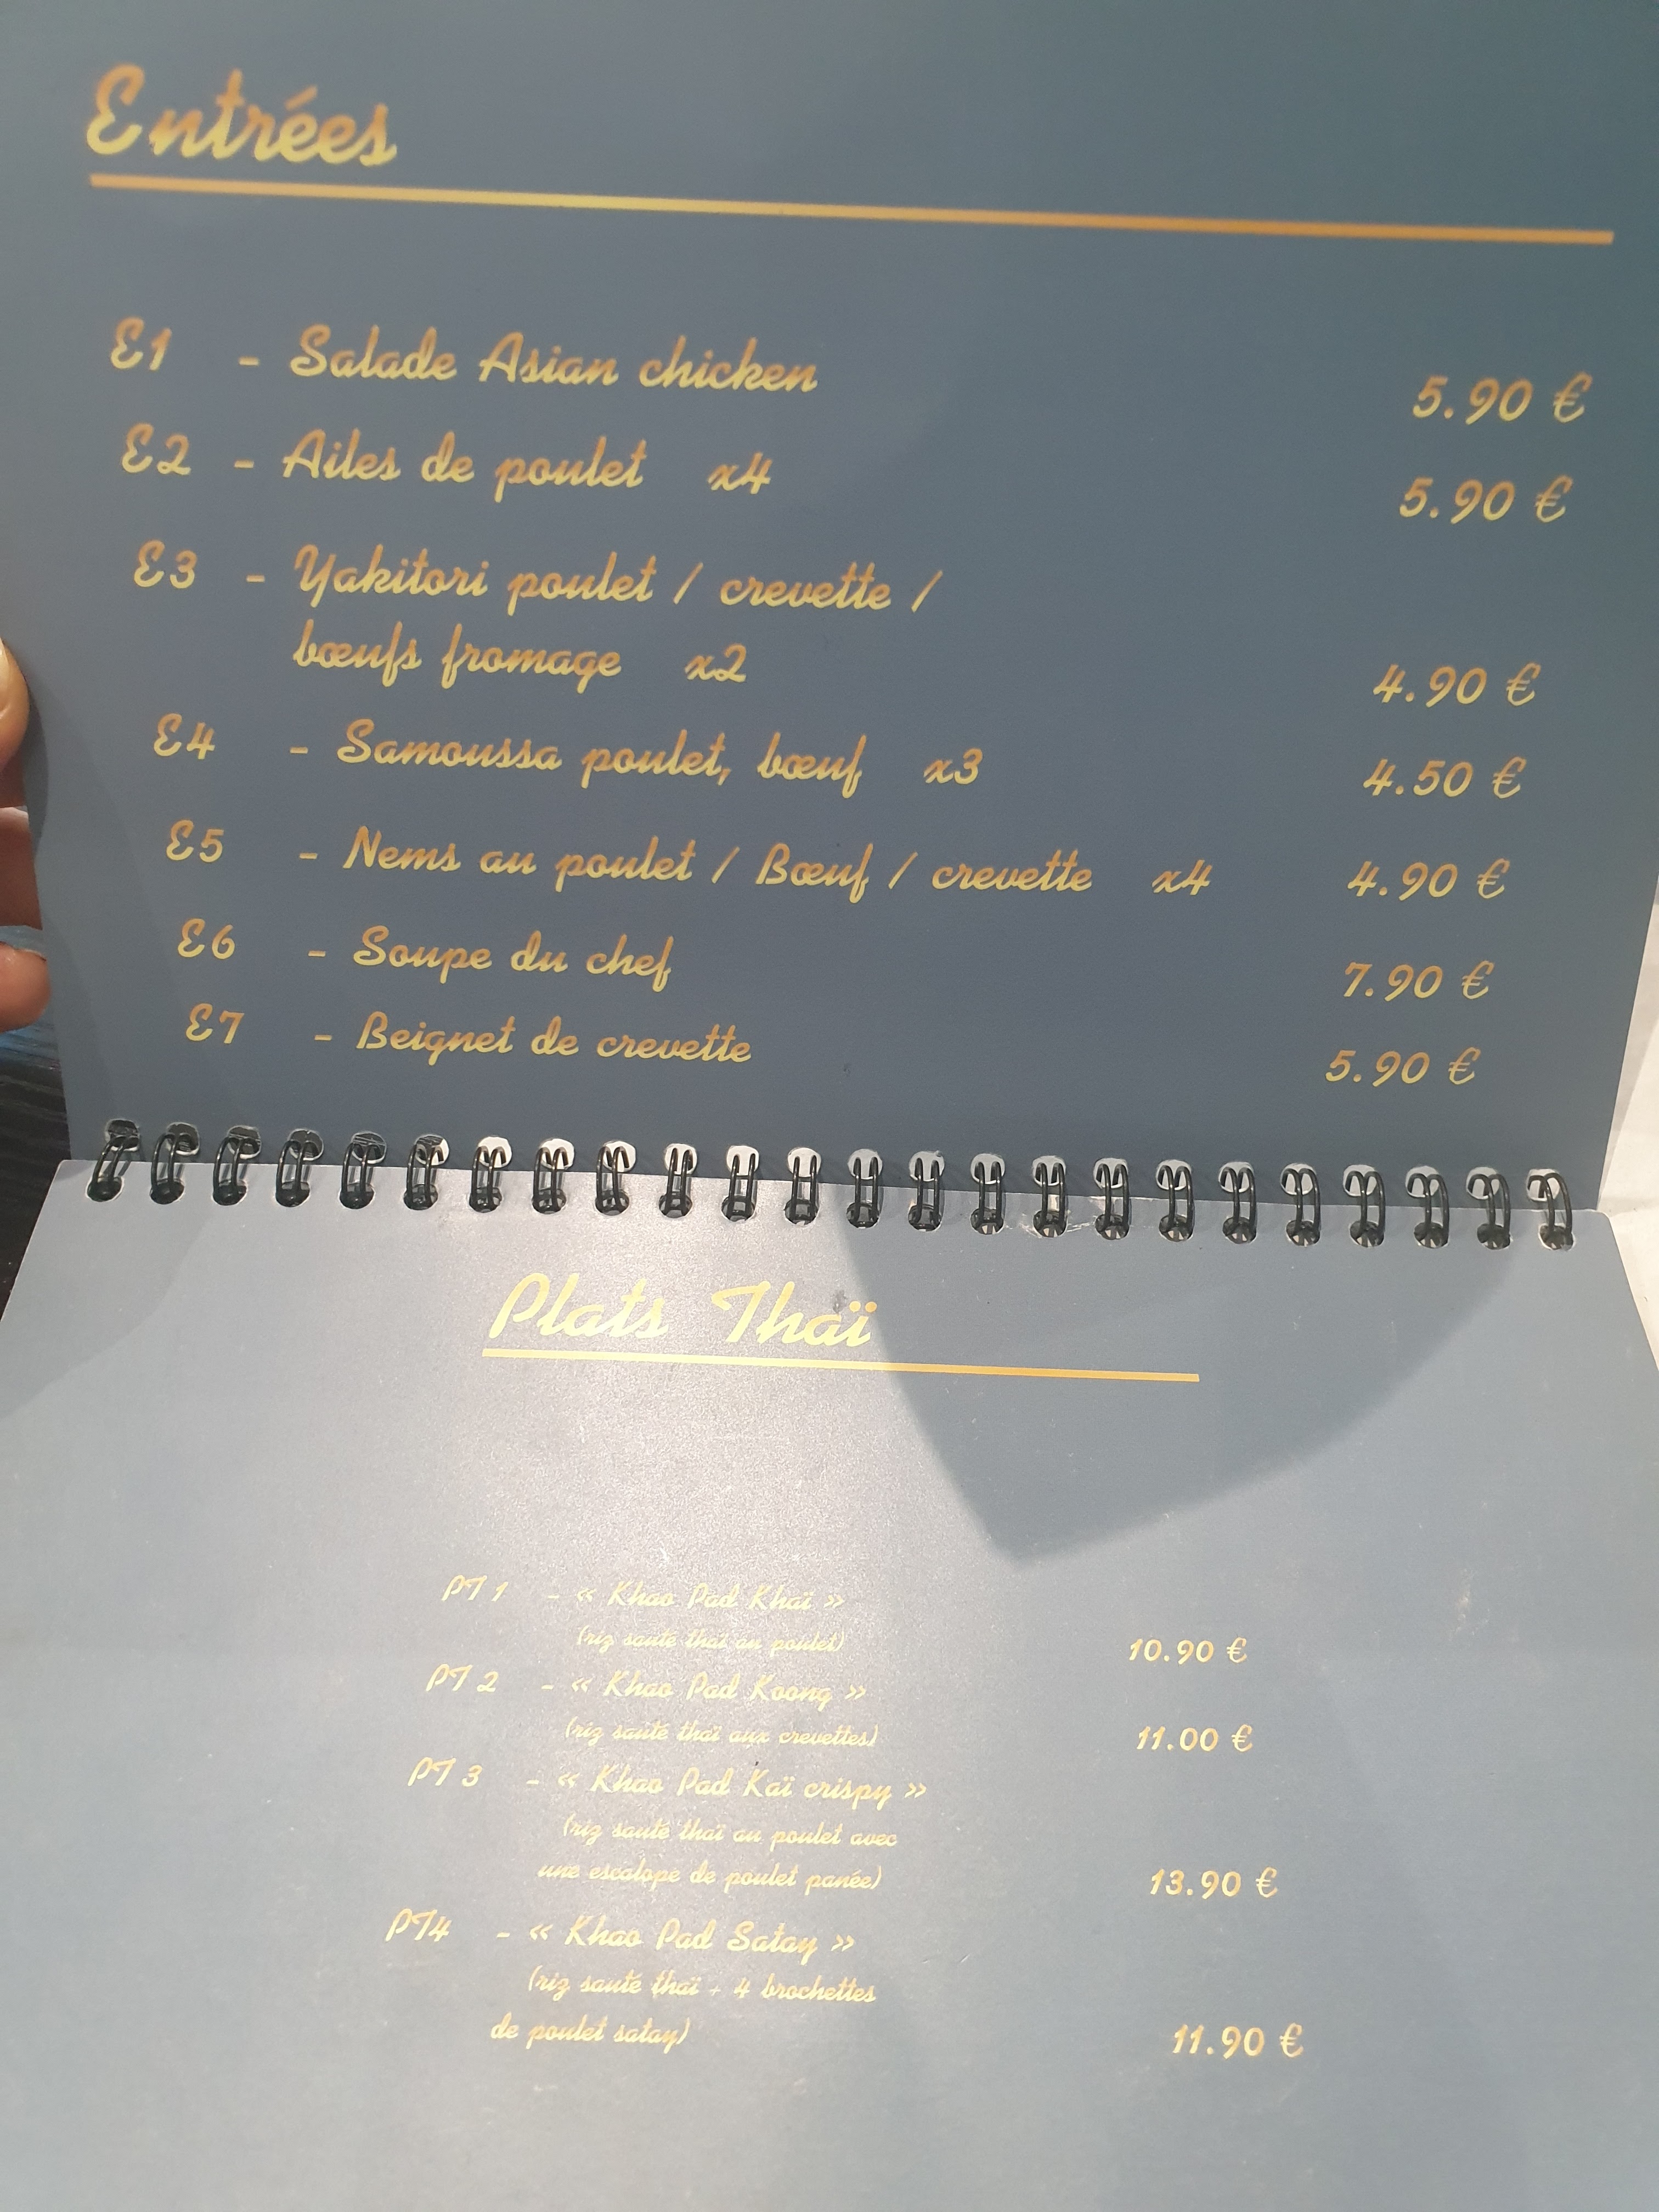 Entrées
E1 - Salade Asian chicken 5.90 €
E2 - Ailes de poulet x4 5.90 €
E3 - Yakitori poulet / crevette /
bœufs fromage x2 4.90 €
E4 - Samoussa poulet, bœuf x3 4.50 €
E5 - Nems au poulet / Bœuf / crevette x4 4.90 €
E6 - Soupe du chef 7.90 €
E7 - Beignet de crevette 5.90 €
Plats Thaï
PT 1 - « Khao Pad Khaï »
(riz sauté thaï au poulet) 10.90 €
PT 2 - « Khao Pad Koong »
(riz sauté thaï aux crevettes) 11.00 €
PT 3 - « Khao Pad Kaï crispy »
(riz sauté thaï au poulet avec
une escalope de poulet panée) 13.90 €
PT4 - « Khao Pad Satay »
(riz sauté thaï + 4 brochettes
de poulet satay) 11.90 €